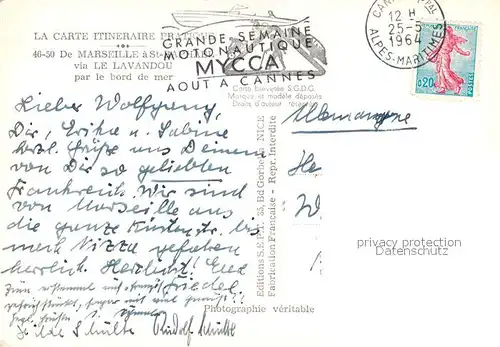 LA CARTE ITINERAIRE PRATIQUE
40-50 De MARSEILLE à St-
via LE LAVANDOU
par le bord de mer
GRANDE SEMAINE
MOTONAUTIQUE
MYCCA
AOUT A CANNES
Carte Brevetée S.G.D.G.
Marque et modèle déposés
Droits d'auteur réservés
CANNES PPAL
12 H
25-5
1964
ALPES-MARITIMES
0,20
POSTES
Lieber Wolfgang,
Dir, Erika u. Sabine
herzl. Grüße aus Deinem
von Dir so geliebten
Frankreich. Wir sind
von Marseille aus
die ganze Küstenstr. bis
nach Nizza gefahren
herrlich. Herzlichst! Eure
Friedel
Hilde Schulte Rudolf Schulte
Allemagne
Editions S.E.P.T. 35, Bd Gorbella NICE
Fabrication Française - Repr. Interdite
Photographie véritable
privacy protection
Datenschutz